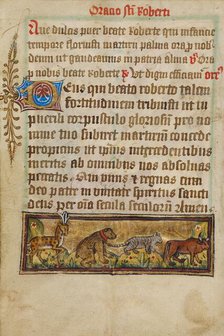 Orano sti Roberti
Aue dulas puer beate Roberte qui infancie
tempore floruisti martirii palma ora p nobis
deum ut gaudeamus in patria alma Ora p
nobis beate Roberte Ut digni effitiam
Deus qui beato roberto talem
fortitudinem tribuisti ut in
puerili corpustulo gloriosum pro no
mine tuo subiret martirium concede
propicius ut ipsius intercedentibus
meritis ab omnibus nos absoluas
peccatis Qui viuis et regnas cum
deo patre in vnitate spiritus sanc
deus per oia secula seculorum Amen